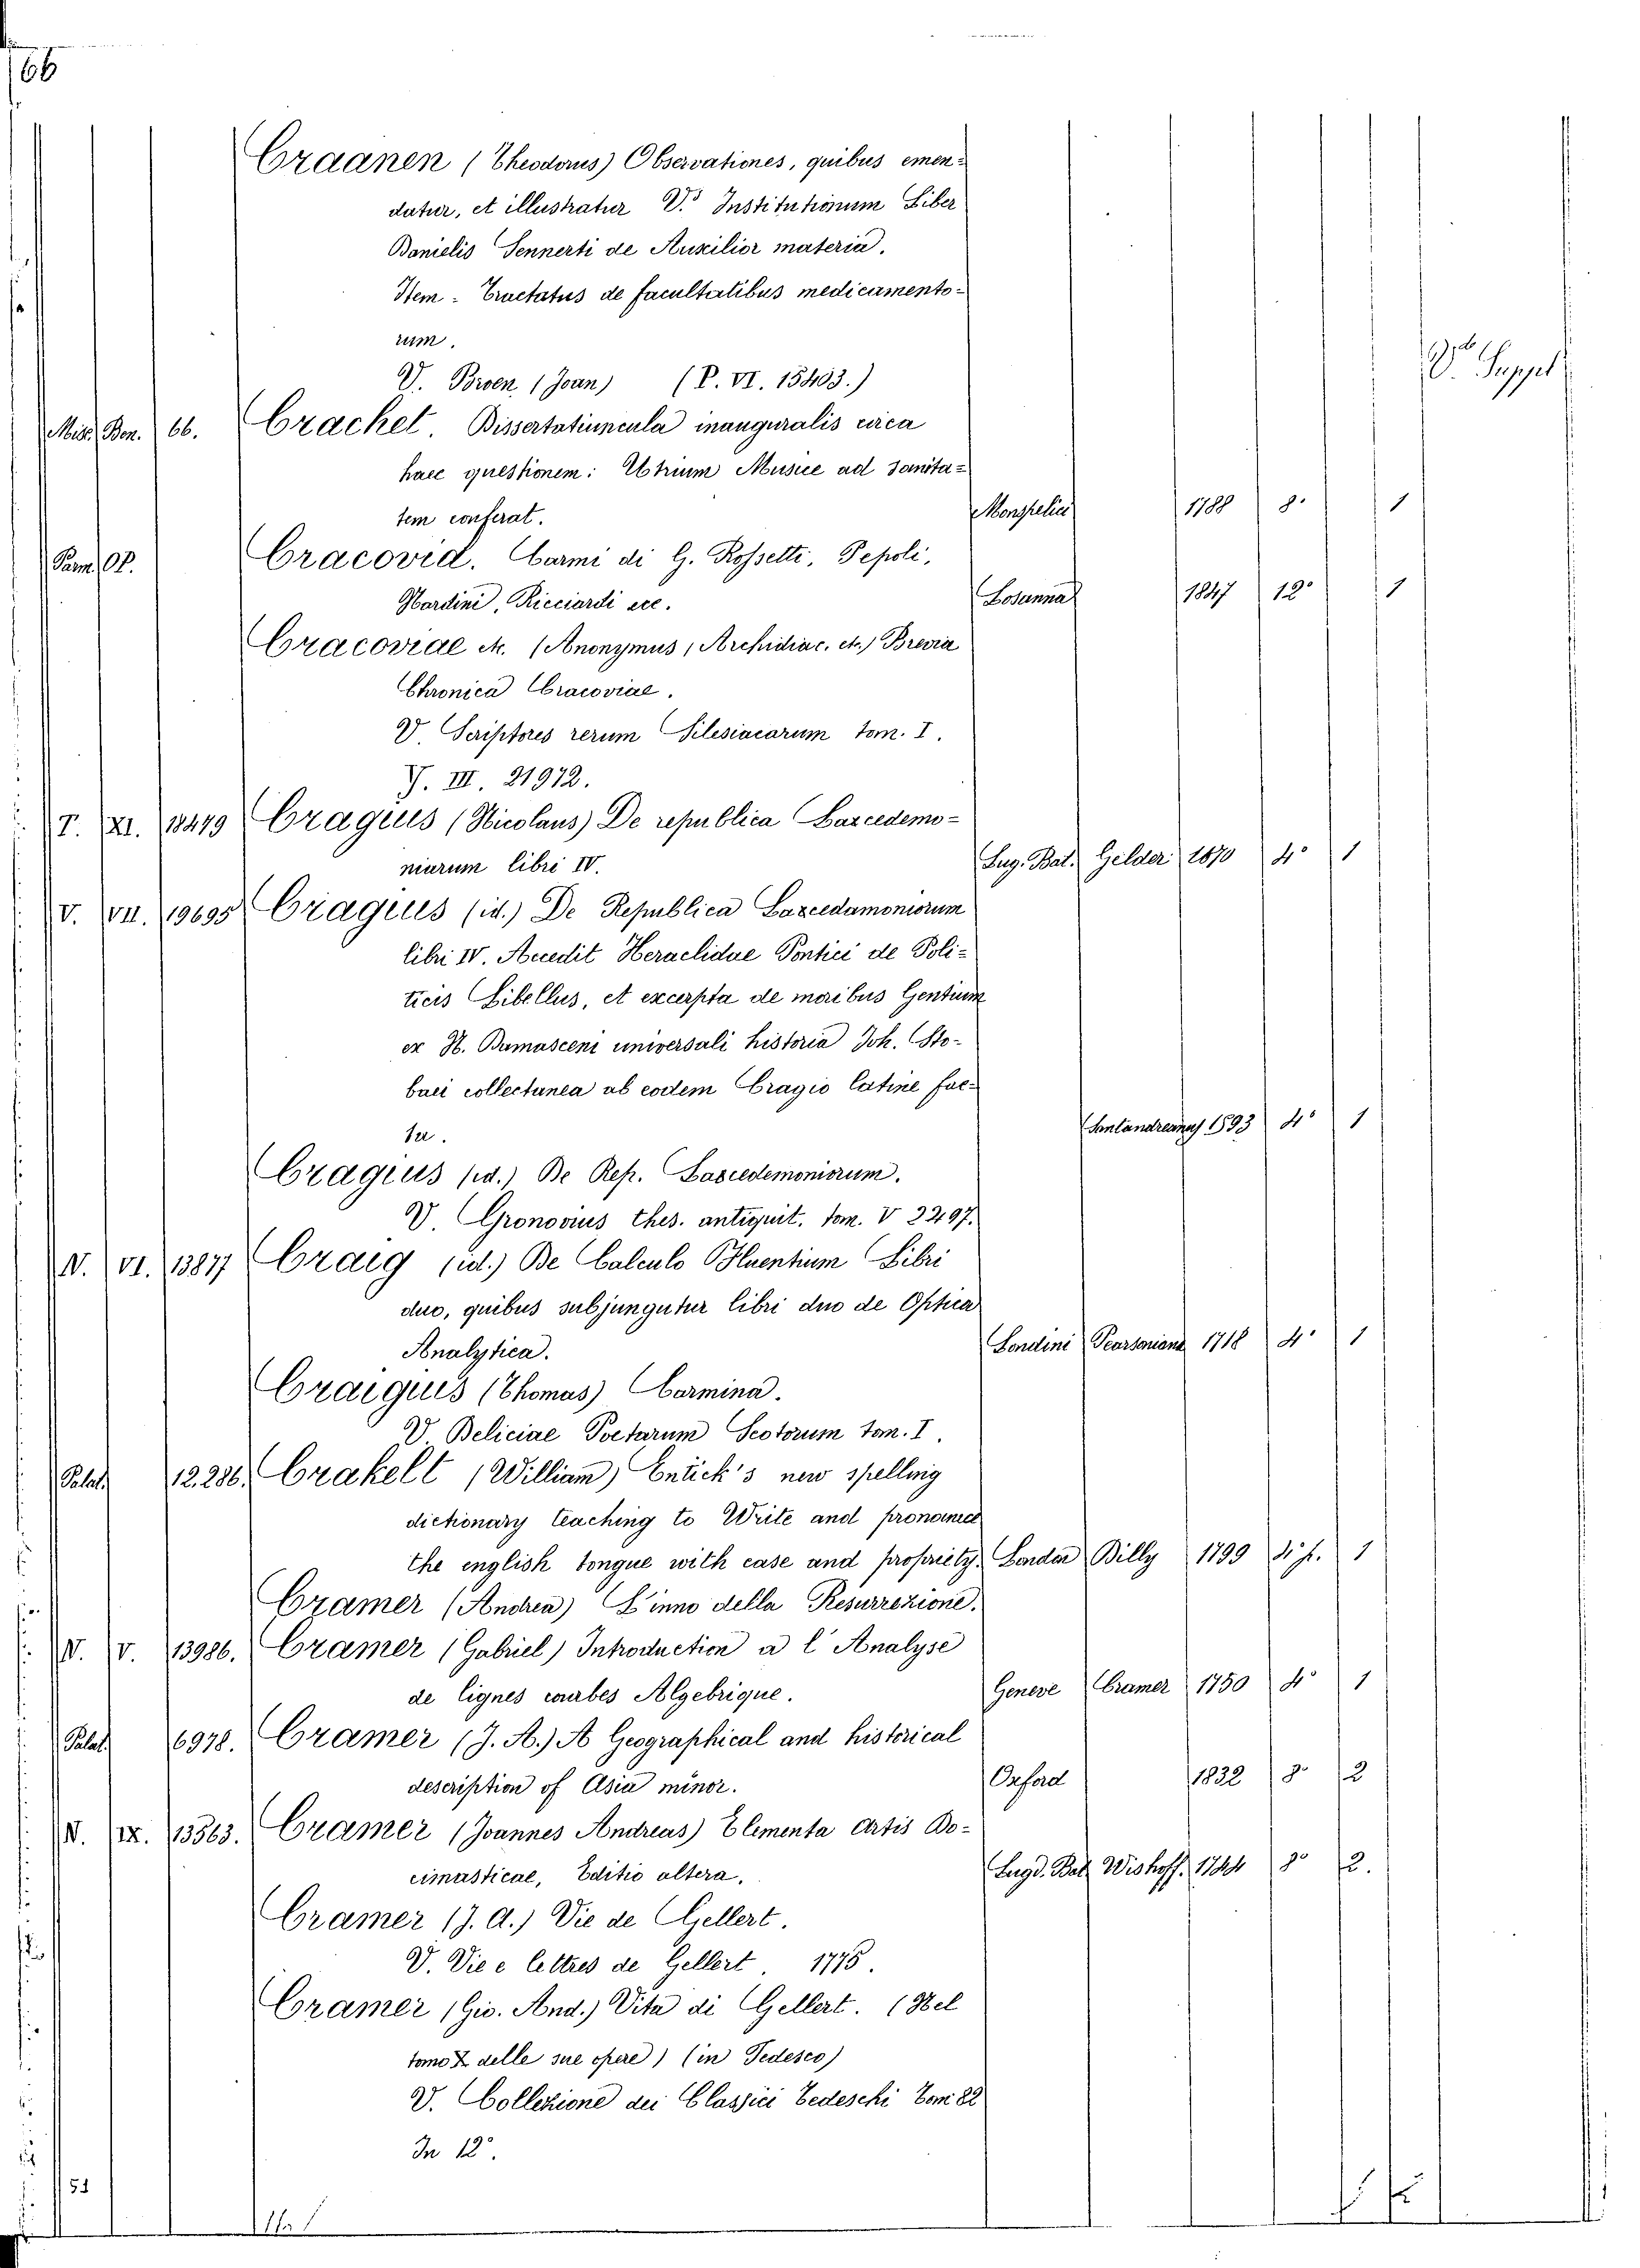 166
Craanen (Theodorus) Observationes, quibus emen-
datur, et illustratur V.º Institutionum Liber
Danielis Sennerti de Auxilior materia.
Item - Tractatus de facultatibus medicamento-
rum.
V. Broen (Joan) (P. VI. 15403.)
V.º Suppl
Misc. Ben. 66. Crachet. Dissertatiuncula inauguralis circa
haec questionem: Utrium Musice ad sanita-
tem conferat. Monspelii 1788 8º 1
Parm. 02. Cracovid. Carmi di G. Rossetti, Pepoli,
Nardini, Ricciardi ecc. Losanna 1847 12º 1
Cracoviae et. (Anonymus, Archidiac. et.) Brevia
Chronica Cracoviae.
V. Scriptores rerum Silesiacarum tom. I.
Y. III. 21972.
T. XI. 18479 Cragius (Nicolaus) De republica Lacedemo-
niarum libri IV. Lug. Bat. Gelder 1670 4º 1
V. VII. 19695 Cragius (id.) De Republica Lacedamoniorum
libri IV. Accedit Heraclidae Pontici de Poli-
ticis Libellus, et excerpta de moribus Gentium
ex N. Damasceni universali historia Joh. Sto-
baei collectanea ab eodem Cragio latine fac-
ta. Santandreanus 1593 4º 1
Cragius (id.) De Rep. Lacedemoniorum.
V. Gronovius thes. antiquit. tom. V 2297.
N. VI. 13877 Craig (id.) De Calculo Fluentium Libri
duo, quibus subjungutur libri duo de Optica
Analytica. Londini Pearsoniana 1718 4º 1
Craigius (Thomas) Carmina.
V. Deliciae Poetarum Scotorum tom. I.
Palat. 12.286. Crakelt (William) Entick's new spelling
dictionary teaching to Write and pronounce
the english tongue with ease and propriety. London Dilly 1799 4º p. 1
Cramer (Andrea) L'inno della Resurrezione.
N. V. 13986. Cramer (Gabriel) Introduction a l'Analyse
de lignes courbes Algebrique. Geneve Cramer 1750 4º 1
Palat. 6978. Cramer (J. A.) A Geographical and historical
description of Asia minor. Oxford 1832 8º 2
N. IX. 13563. Cramer (Joannes Andreas) Elementa Artis Do-
cimasticae, Editio altera. Lugd. Bat. Wishoff. 1744 8º 2.
Cramer (J. A.) Vie de Gellert.
V. Vie e lettres de Gellert. 1775.
Cramer (Gio. And.) Vita di Gellert. (Nel
tomo X delle sue opere) (in Tedesco)
V. Collezione dei Classici tedeschi Tom 82
In 12º.
51